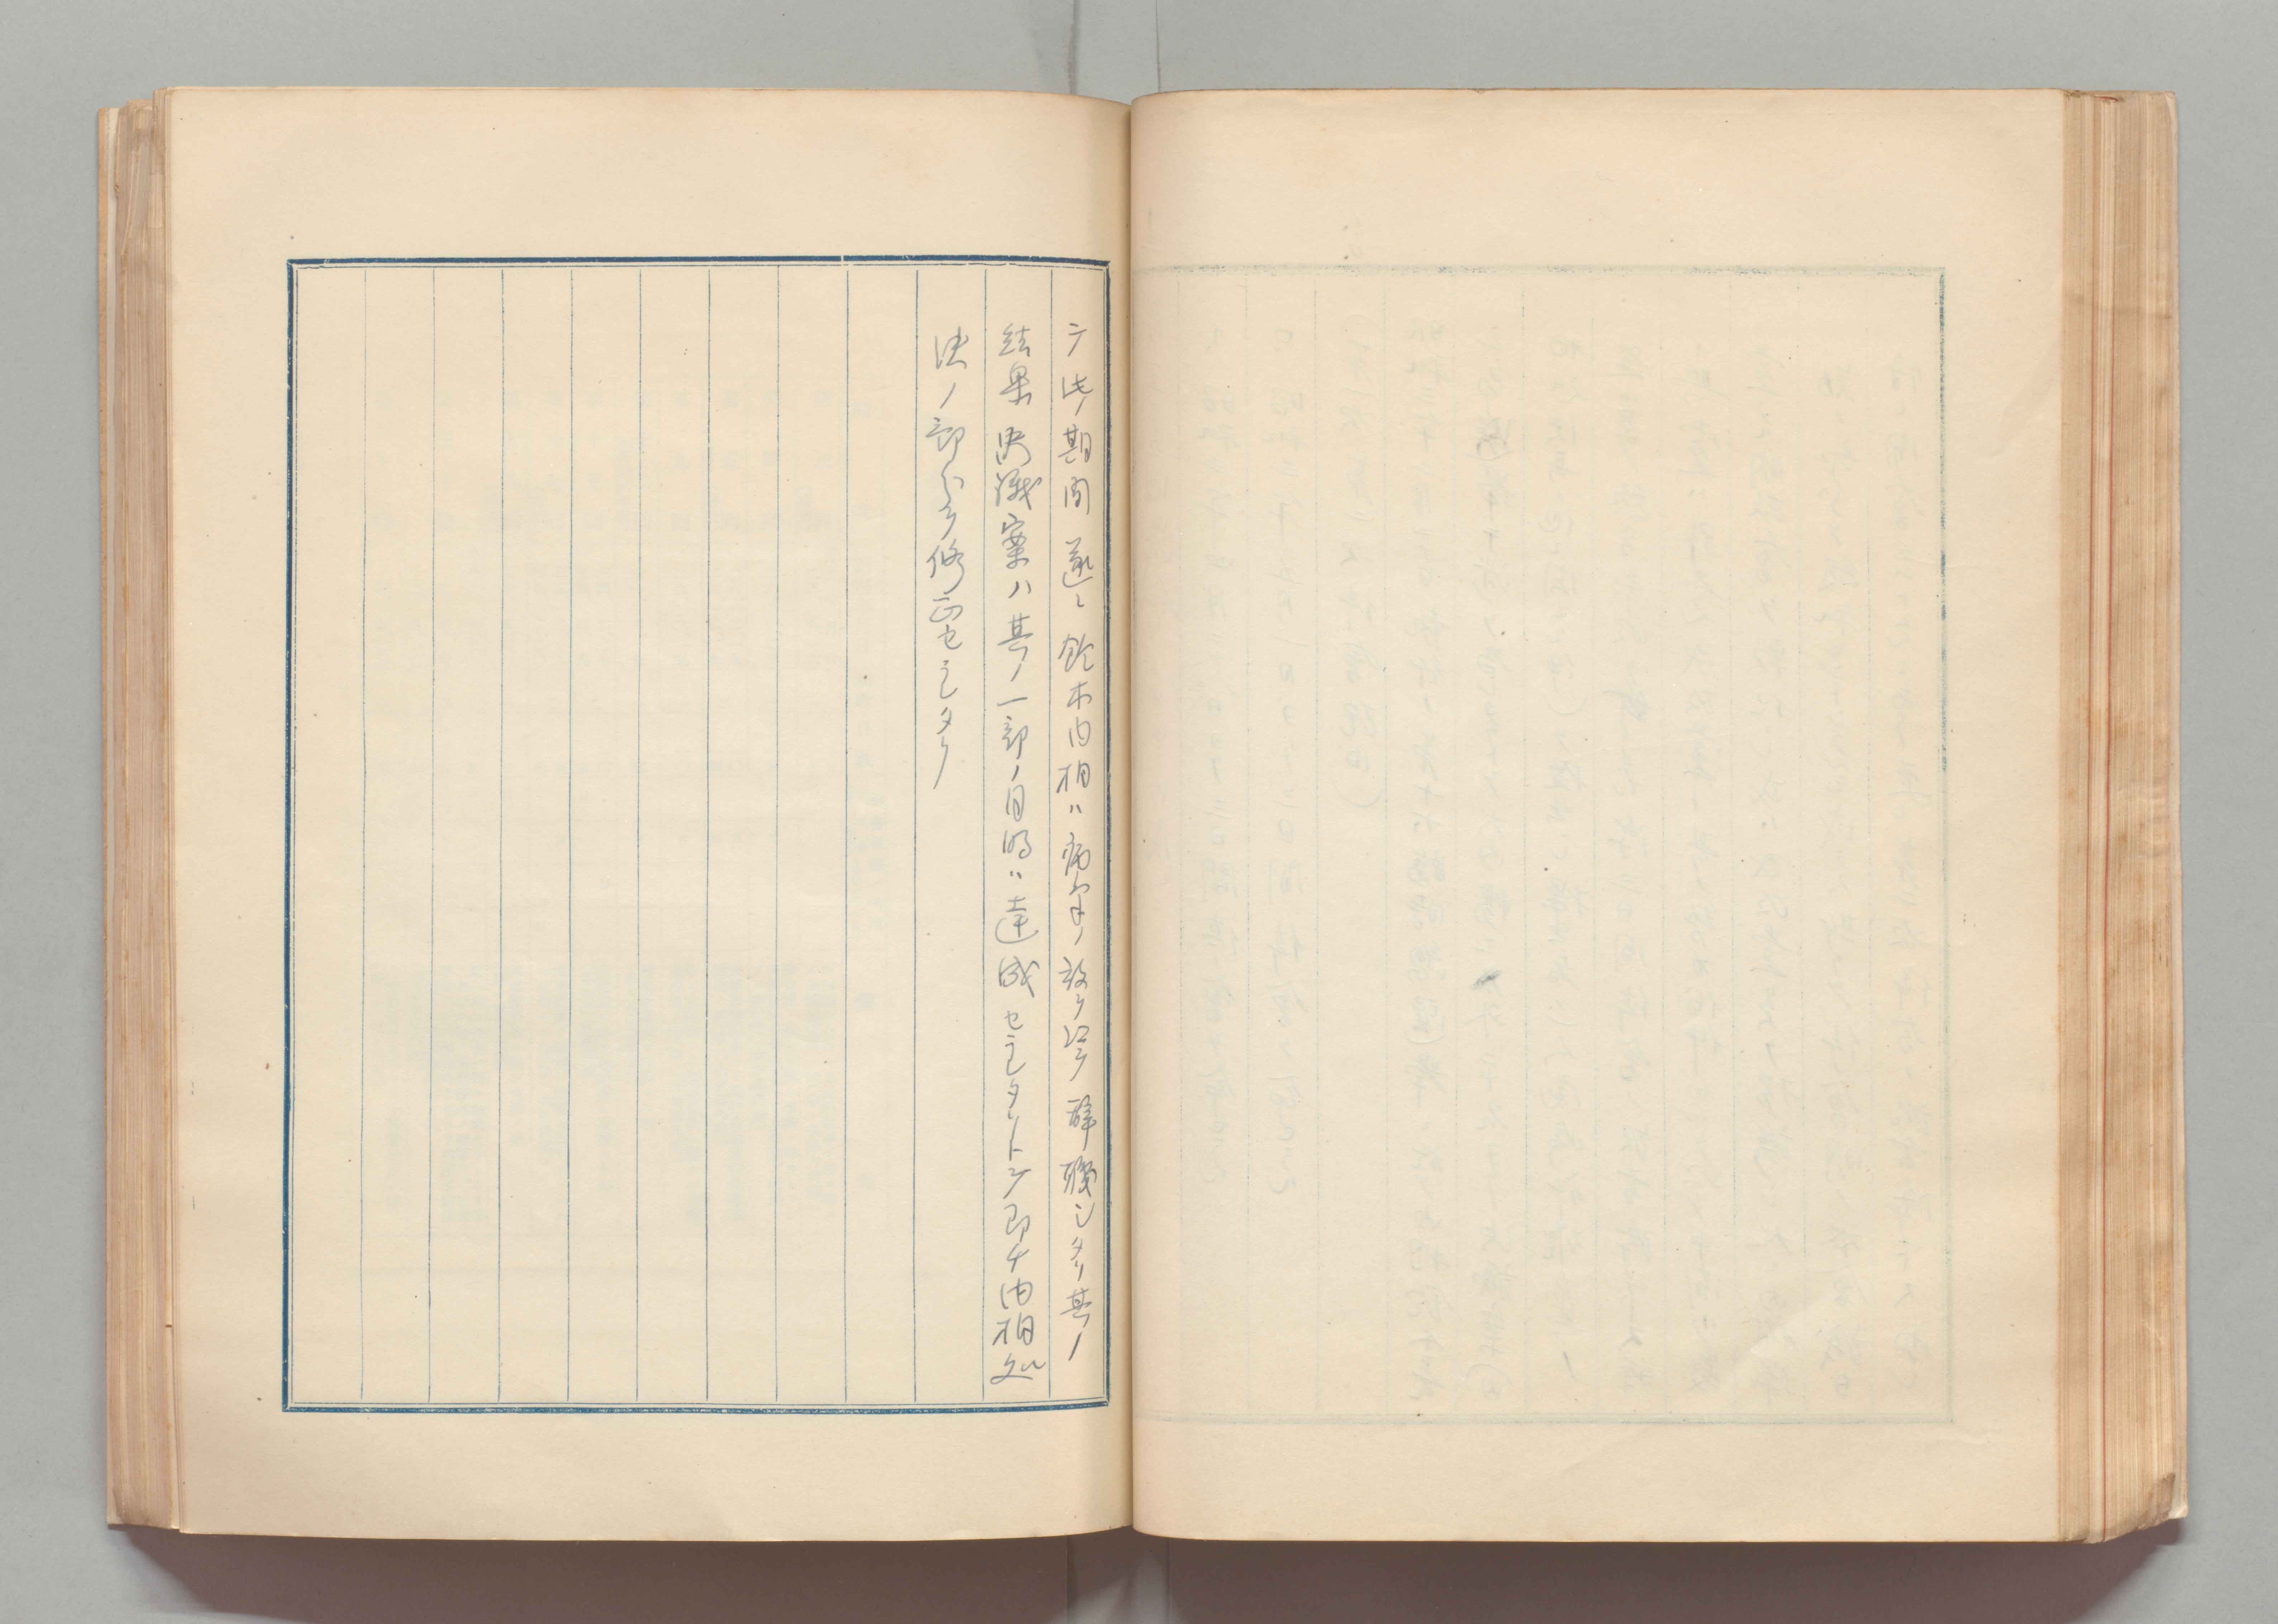 テ此ノ期間遂ニ鈴木内相ハ病気ノ故ヲ以テ辞職シタリ其ノ
結果決議案ハ其ノ一部ノ目的ニ達成セラレタリトシ即チ内相処
決ノ部分ヲ修正セラレタリ